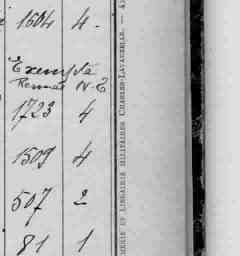 1604 4
Exempté
Rennes N-E
1723 4
1509 4
507 2
81 1
MERIE ET LIBRAIRIE MILITAIRES CHARLES-LAVAUZELLE. —